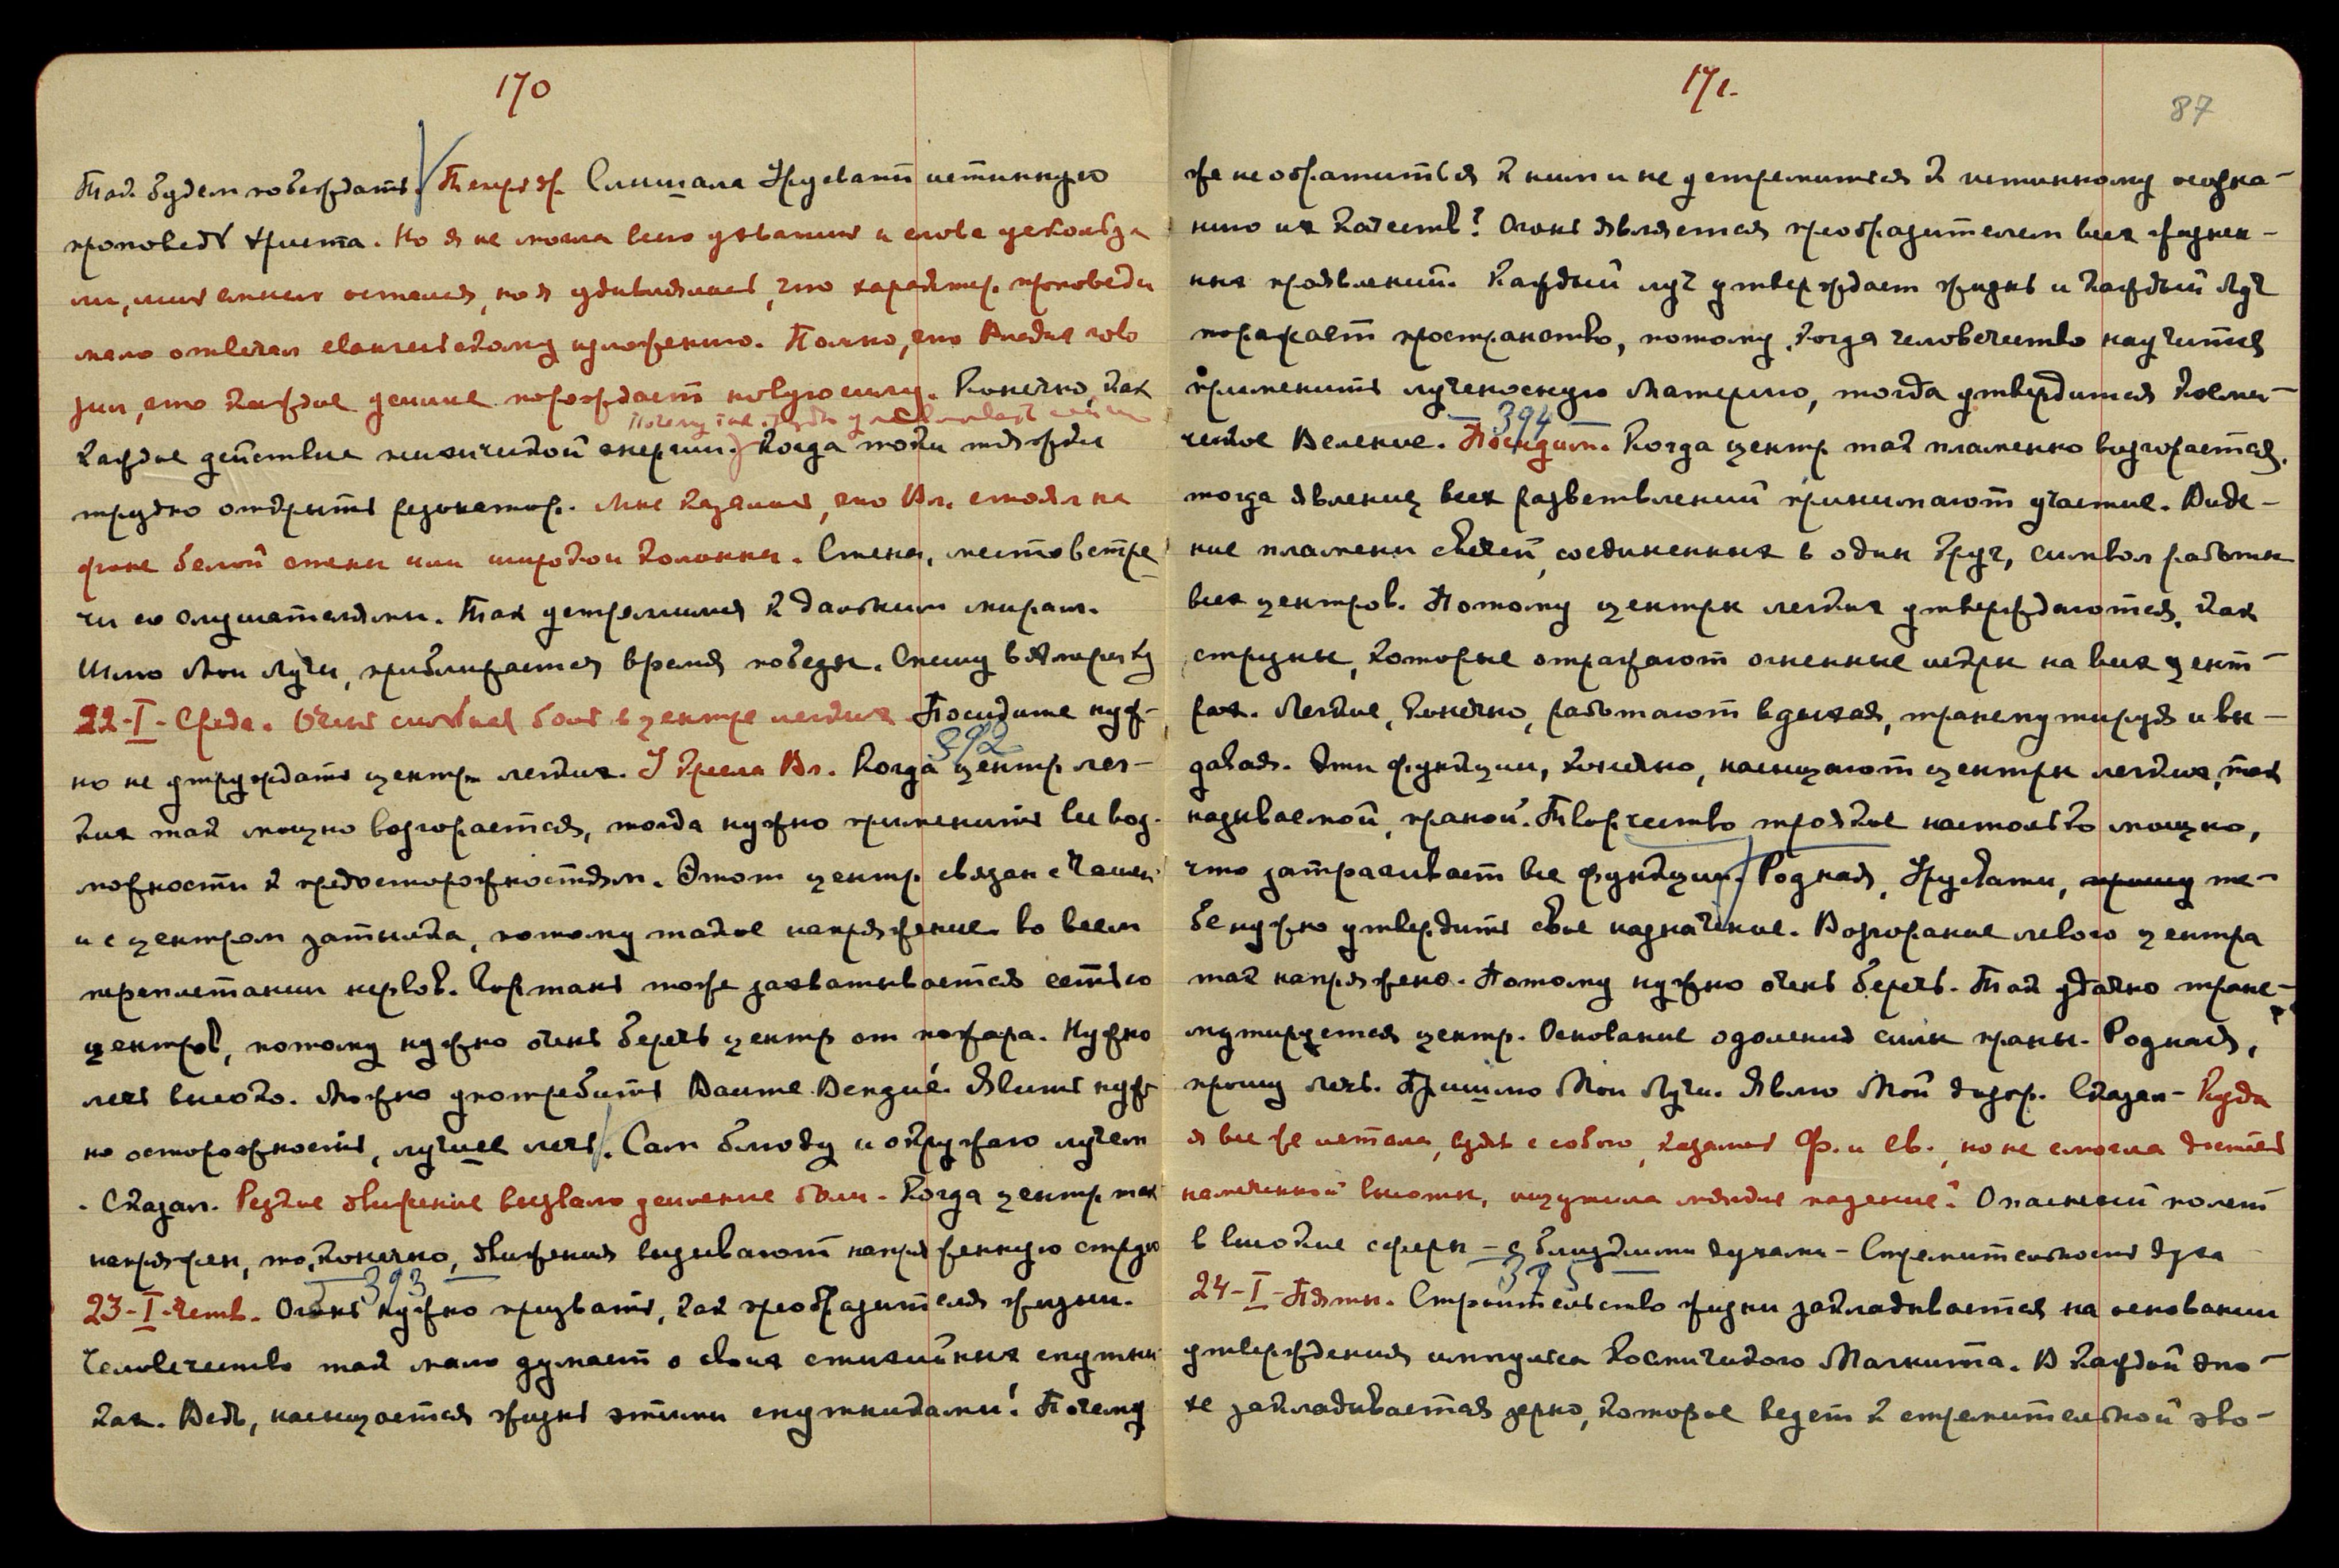 170
Так будем побеждать. Теперь я. Слышала Урусвати истинную
проповедь Христа. Но я не могла всего удержать и слова ускольза
ли, лишь смысл остался, но я удивлялась, что характер проповеди
мало отвечал евангельскому изложению. Помню, что Владыка гово
рил, что каждое деление порождает новую силу. Конечно, как
каждое действие психической энергии. Когда токи тяжки
трудно открыть резонатор. Мне казалось, что Вл. стоял на
фоне белой стены или широкой колонны. Стена, место встре
чи со слушателями. Так устремимся к дальним мирам.
Шлю Мои Лучи, приближается время победы. Спешу в Америку
22-I- Среда. Очень сильная боль в центре легких. Посидите нуж-
392
но не утруждать центр легких. У кресла Вл. Когда центр лег-
ких так мощно возгорается, тогда нужно применить все воз-
можности к предосторожностям. Этот центр связан с Чашей
и с центром затылка, потому такое напряжение во всем
переплетании нервов. Гортань тоже захватывается сетью
центров, потому нужно очень беречь центр от пожара. Нужно
лечь высоко. Можно употребить Baume Bengué. Явить нуж
но осторожность, лучше лечь. Сам блюду и окружаю лучем
. Сказал. Резкое движение вызвало усиление боли. Когда центр так
напряжен, то, конечно, движения вызывают напряженную струю
393
23-I-четв. Огонь нужно призвать, как преобразителя жизни.
Человечество так мало думает о своих стихийных спутни
ках. Ведь, насыщается жизнь этими спутниками! Почему
171.
87
же не обратиться к ним и не устремиться к истинному осозна-
нию их качеств? Огонь является преобразителем всех жизнен-
ных проявлений. Каждый луч утверждает жизнь и каждый луч
поражает пространство, потому, когда человечество научится
применить лученосную Материю, тогда утвердится Косми-
394
ческое Веление. Посидим. Когда центр так пламенно возгорается,
тогда явление всех разветвлений принимают участие. Виде-
ние пламени свечей, соединенных в один круг, символ работы
всех центров. Потому центры легких утверждаются, как
струны, которые отражают огненные искры на всех цент-
рах. Легкие, конечно, работают вдыхая, трансмутируя и вы-
давая. Эти функции, конечно, насыщают центры легких, так
называемой, праной. Творчество тройное настолько мощно,
что затрагивает все функции. Родная, Урусвати, прошу те-
бе нужно утвердить свое назначение. Возгорание левого центра
так напряжено. Потому нужно очень беречь. Так удачно транс-
мутируется центр. Основание одоления силы праны. Родная,
прошу лечь. Пришлю Мои Лучи. Явлю Мой дозор. Сказал- Куда
я все же летала, взяв с собою, кажется Ф. и Св., но не смогла достичь
намеченной высоты, ощутила мягкое падение. Опасный полет
в высокие сферы - с близкими духами - Стремительность духа
395
24-I-Пятн. Строительство жизни закладывается на основании
утверждения импульса Космического Магнита. В каждой эпо-
хе закладывается зерно, которое ведет к стремительной эво-